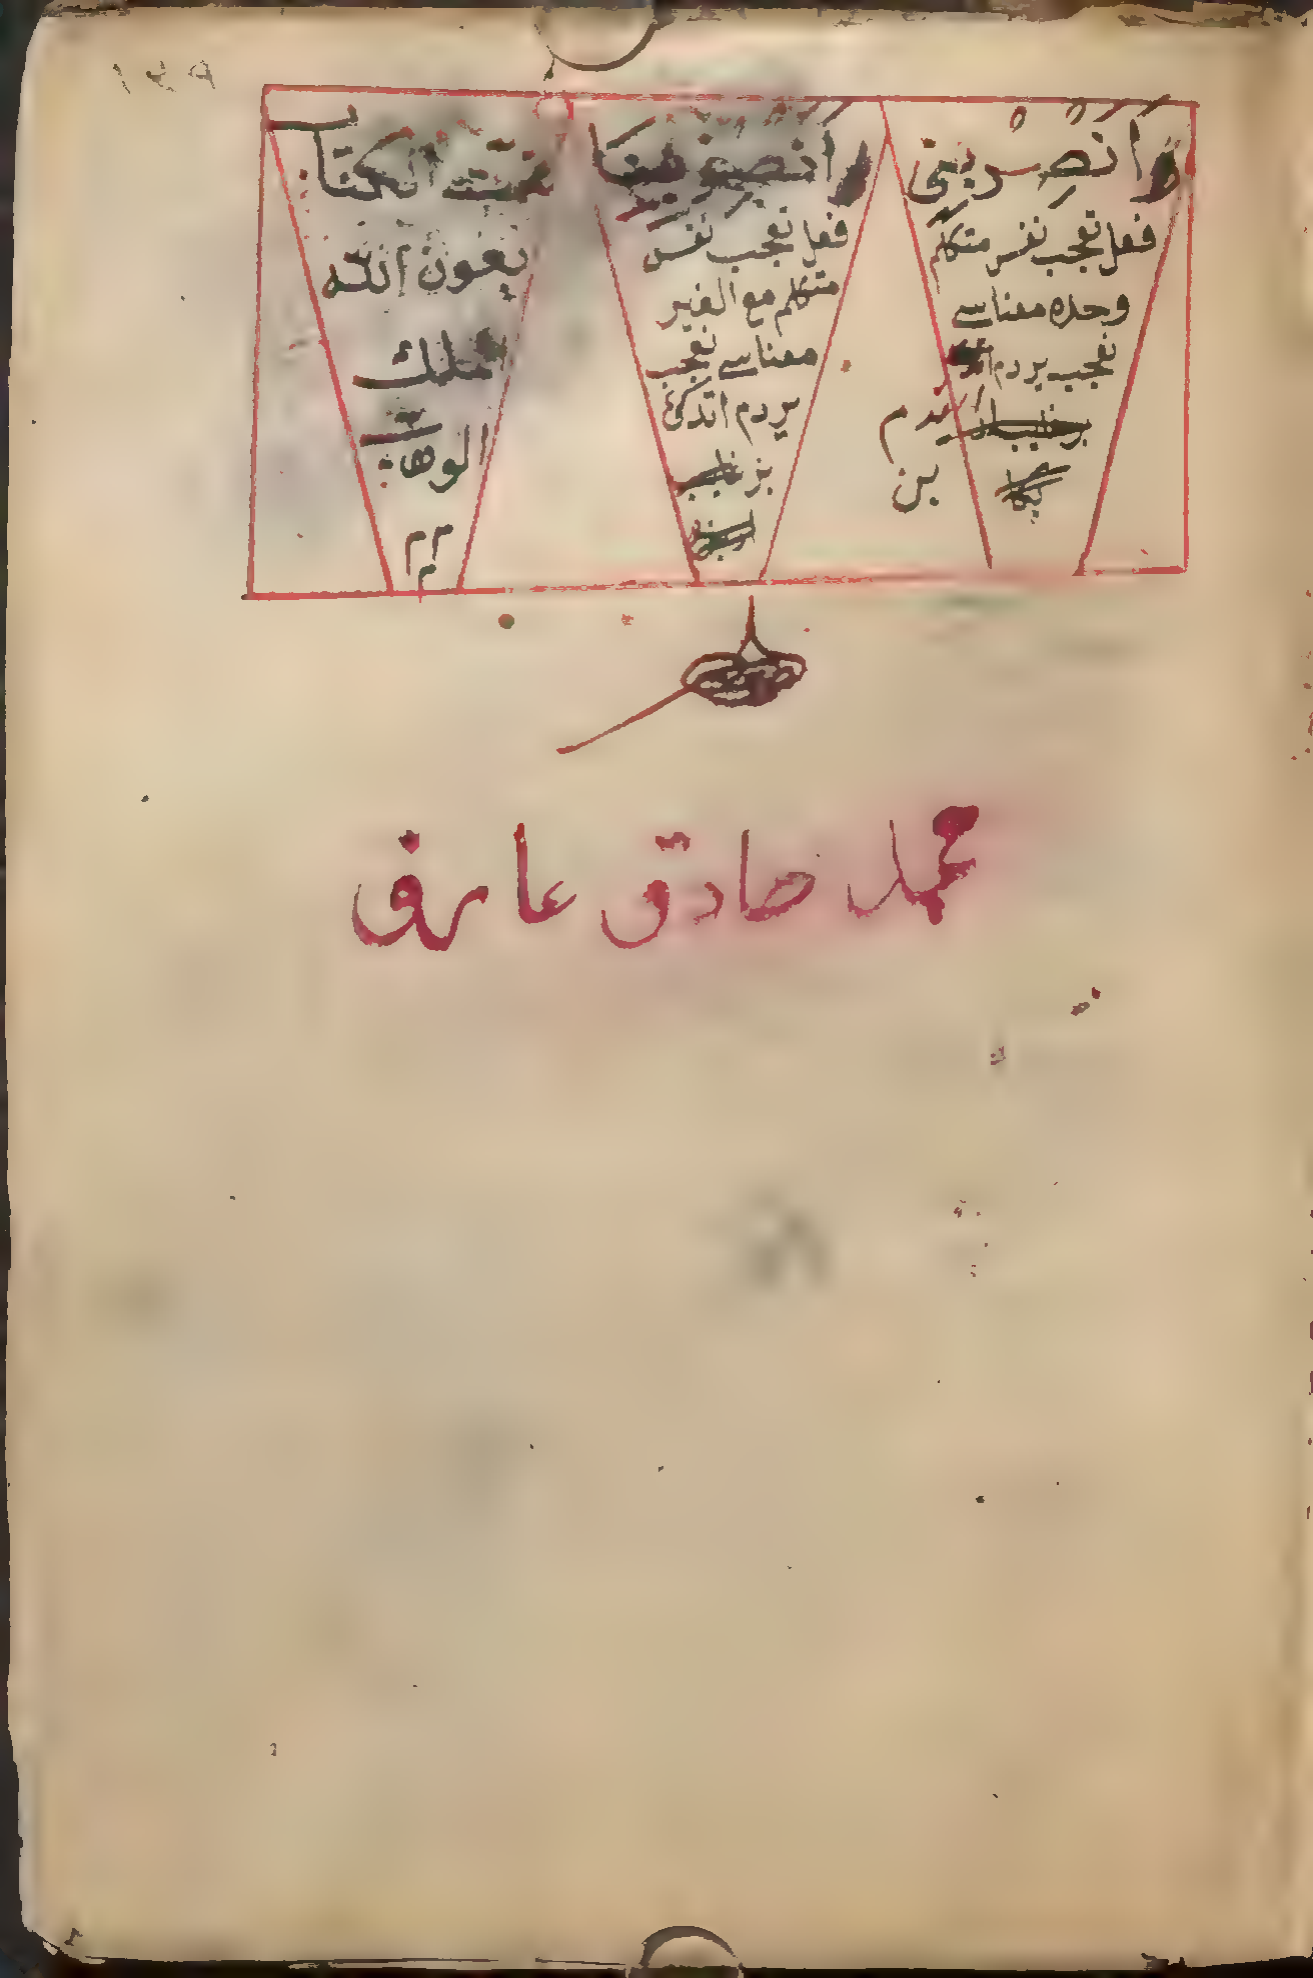 ١٤٩
وانصر بى
فعل تعجب نفس متكلم
وحده معناسى
تعجب يردم
ايتدم
بن
وانصر بنا
فعل تعجب نفس
متكلم مع الغير
معناسى تعجب
يردم اتدك
بز
تمت الكتاب
بعون الله
ملك
الوهاب
م م م
محمد صادق عارف